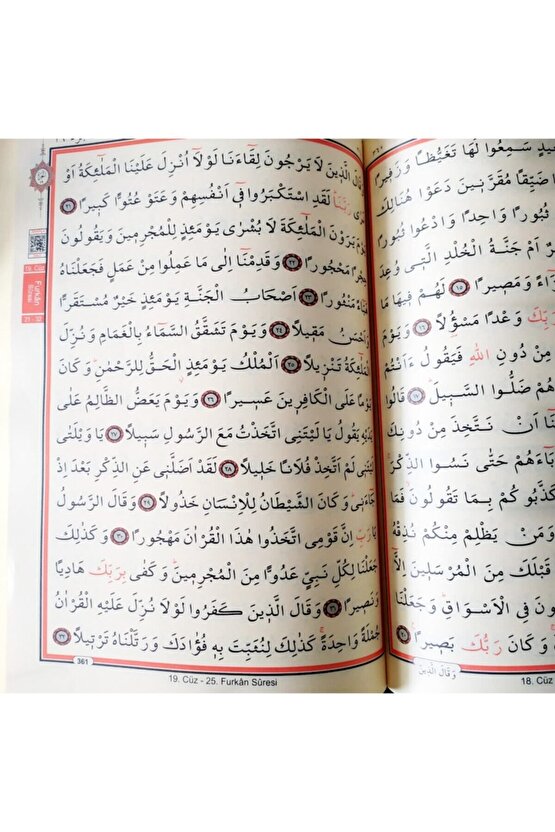 سَمِعُوا لَهَا تَغَيُّظًا وَزَفِيرًا
ضَيِّقًا مُقَرَّنِينَ دَعَوْا هُنَالِكَ
ثُبُورًا وَاحِدًا وَادْعُوا ثُبُورًا
اَمْ جَنَّةُ الْخُلْدِ الَّتِى وُعِدَ
وَمَصِيرًا ﴿١٥﴾ لَهُمْ فِيهَا مَا
وَعْدًا مَسْؤُلًا ﴿١٦﴾ وَيَوْمَ
مِنْ دُونِ اللّٰهِ فَيَقُولُ ءَاَنْتُمْ
ضَلُّوا السَّبِيلَ ﴿١٧﴾ قَالُوا
اَنْ نَتَّخِذَ مِنْ دُونِكَ
حَتّٰى نَسُوا الذِّكْرَ
بِمَا تَقُولُونَ فَمَا
وَمَنْ يَظْلِمْ مِنْكُمْ نُذِقْهُ
قَبْلَكَ مِنَ الْمُرْسَلِينَ اِلَّٓا
فِى الْاَسْوَاقِ وَجَعَلْنَا
وَكَانَ رَبُّكَ بَصِيرًا ﴿٢٠﴾
وَقَالَ الَّذِينَ
18. Cüz
قَالَ الَّذِينَ لَا يَرْجُونَ لِقَٓاءَنَا لَوْلَٓا اُنْزِلَ عَلَيْنَا الْمَلٰٓئِكَةُ اَوْ
رَبَّنَا لَقَدِ اسْتَكْبَرُوا فِٓى اَنْفُسِهِمْ وَعَتَوْ عُتُوًّا كَبِيرًا ﴿٢١﴾
يَرَوْنَ الْمَلٰٓئِكَةَ لَا بُشْرٰى يَوْمَئِذٍ لِلْمُجْرِمِينَ وَيَقُولُونَ
مَحْجُورًا ﴿٢٢﴾ وَقَدِمْنَٓا اِلٰى مَا عَمِلُوا مِنْ عَمَلٍ فَجَعَلْنَاهُ
مَنْثُورًا ﴿٢٣﴾ اَصْحَابُ الْجَنَّةِ يَوْمَئِذٍ خَيْرٌ مُسْتَقَرًّا
وَاَحْسَنُ مَقِيلًا ﴿٢٤﴾ وَيَوْمَ تَشَقَّقُ السَّمَٓاءُ بِالْغَمَامِ وَنُزِّلَ
الْمَلٰٓئِكَةُ تَنْزِيلًا ﴿٢٥﴾ اَلْمُلْكُ يَوْمَئِذٍ الْحَقُّ لِلرَّحْمٰنِ وَكَانَ
يَوْمًا عَلَى الْكَافِرِينَ عَسِيرًا ﴿٢٦﴾ وَيَوْمَ يَعَضُّ الظَّالِمُ عَلٰى
يَدَيْهِ يَقُولُ يَا لَيْتَنِى اتَّخَذْتُ مَعَ الرَّسُولِ سَبِيلًا ﴿٢٧﴾ يَا وَيْلَتٰى
لَيْتَنِى لَمْ اَتَّخِذْ فُلَانًا خَلِيلًا ﴿٢٨﴾ لَقَدْ اَضَلَّنِى عَنِ الذِّكْرِ بَعْدَ اِذْ
جَٓاءَنِى وَكَانَ الشَّيْطَانُ لِلْاِنْسَانِ خَذُولًا ﴿٢٩﴾ وَقَالَ الرَّسُولُ
يَا رَبِّ اِنَّ قَوْمِى اتَّخَذُوا هٰذَا الْقُرْاٰنَ مَهْجُورًا ﴿٣٠﴾ وَكَذٰلِكَ
جَعَلْنَا لِكُلِّ نَبِىٍّ عَدُوًّا مِنَ الْمُجْرِمِينَ وَكَفٰى بِرَبِّكَ هَادِيًا
وَنَصِيرًا ﴿٣١﴾ وَقَالَ الَّذِينَ كَفَرُوا لَوْلَا نُزِّلَ عَلَيْهِ الْقُرْاٰنُ
جُمْلَةً وَاحِدَةً كَذٰلِكَ لِنُثَبِّتَ بِهِ فُؤَادَكَ وَرَتَّلْنَاهُ تَرْتِيلًا ﴿٣٢﴾
361
19. Cüz - 25. Furkân Sûresi
19. Cüz
Furkân
Sûresi
21 - 32